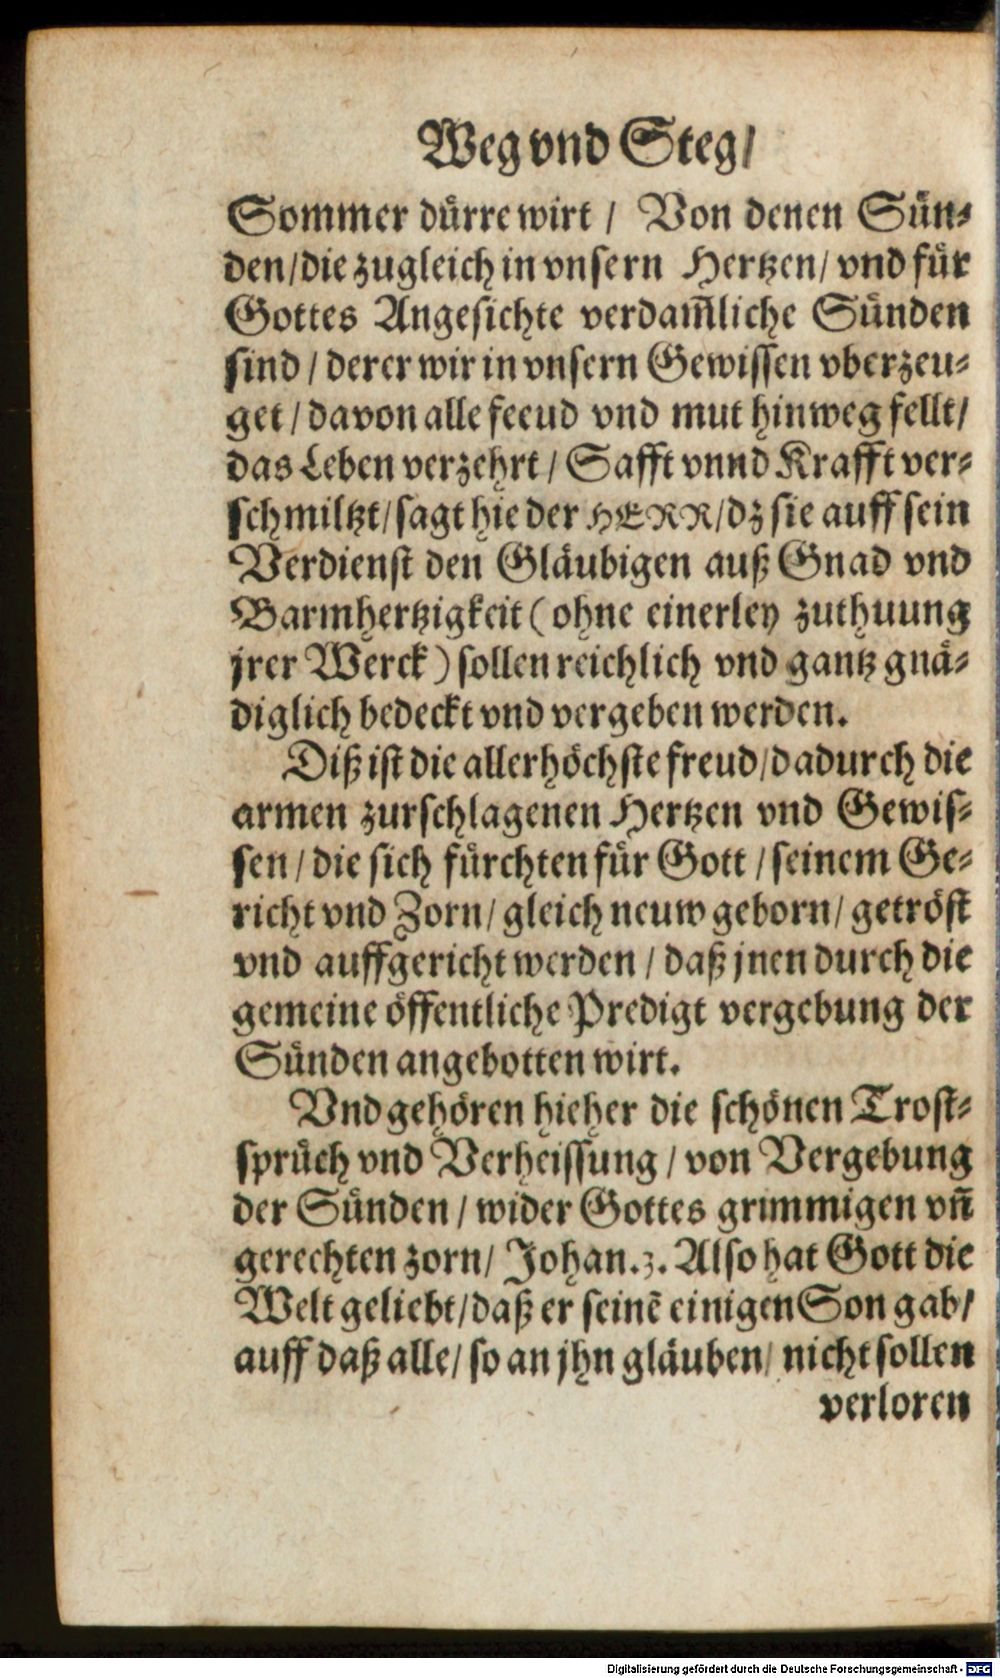 Weg vnd Steg/
Sommer dürre wirt / Von denen Sün⸗
den/die zugleich in vnsern Hertzen/ vnd für
Gottes Angesichte verdam̃liche Sünden
sind / derer wir in vnsern Gewissen vberzeu⸗
get / davon alle feeud vnd mut hinweg fellt/
das Leben verzehrt / Safft vnnd Krafft ver⸗
schmiltzt/ sagt hie der HERR/dz sie auff sein
Verdienst den Gläubigen auß Gnad vnd
Barmhertzigkeit ( ohne einerley zuthuung
jrer Werck ) sollen reichlich vnd gantz gnä⸗
diglich bedeckt vnd vergeben werden.
Diß ist die allerhöchste freud/dadurch die
armen zurschlagenen Hertzen vnd Gewis⸗
sen / die sich fürchten für Gott / seinem Ge⸗
richt vnd Zorn/ gleich neuw geborn/ getröst
vnd auffgericht werden / daß jnen durch die
gemeine öffentliche Predigt vergebung der
Sünden angebotten wirt.
Vnd gehören hieher die schönen Trost⸗
sprüch vnd Verheissung / von Vergebung
der Sünden / wider Gottes grimmigen vñ
gerechten zorn/ Johan.3. Also hat Gott die
Welt geliebt/daß er seinẽ einigen Son gab/
auff daß alle/ so an jhn gläuben/ nicht sollen
verloren
Digitalisierung gefördert durch die Deutsche Forschungsgemeinschaft - DFG